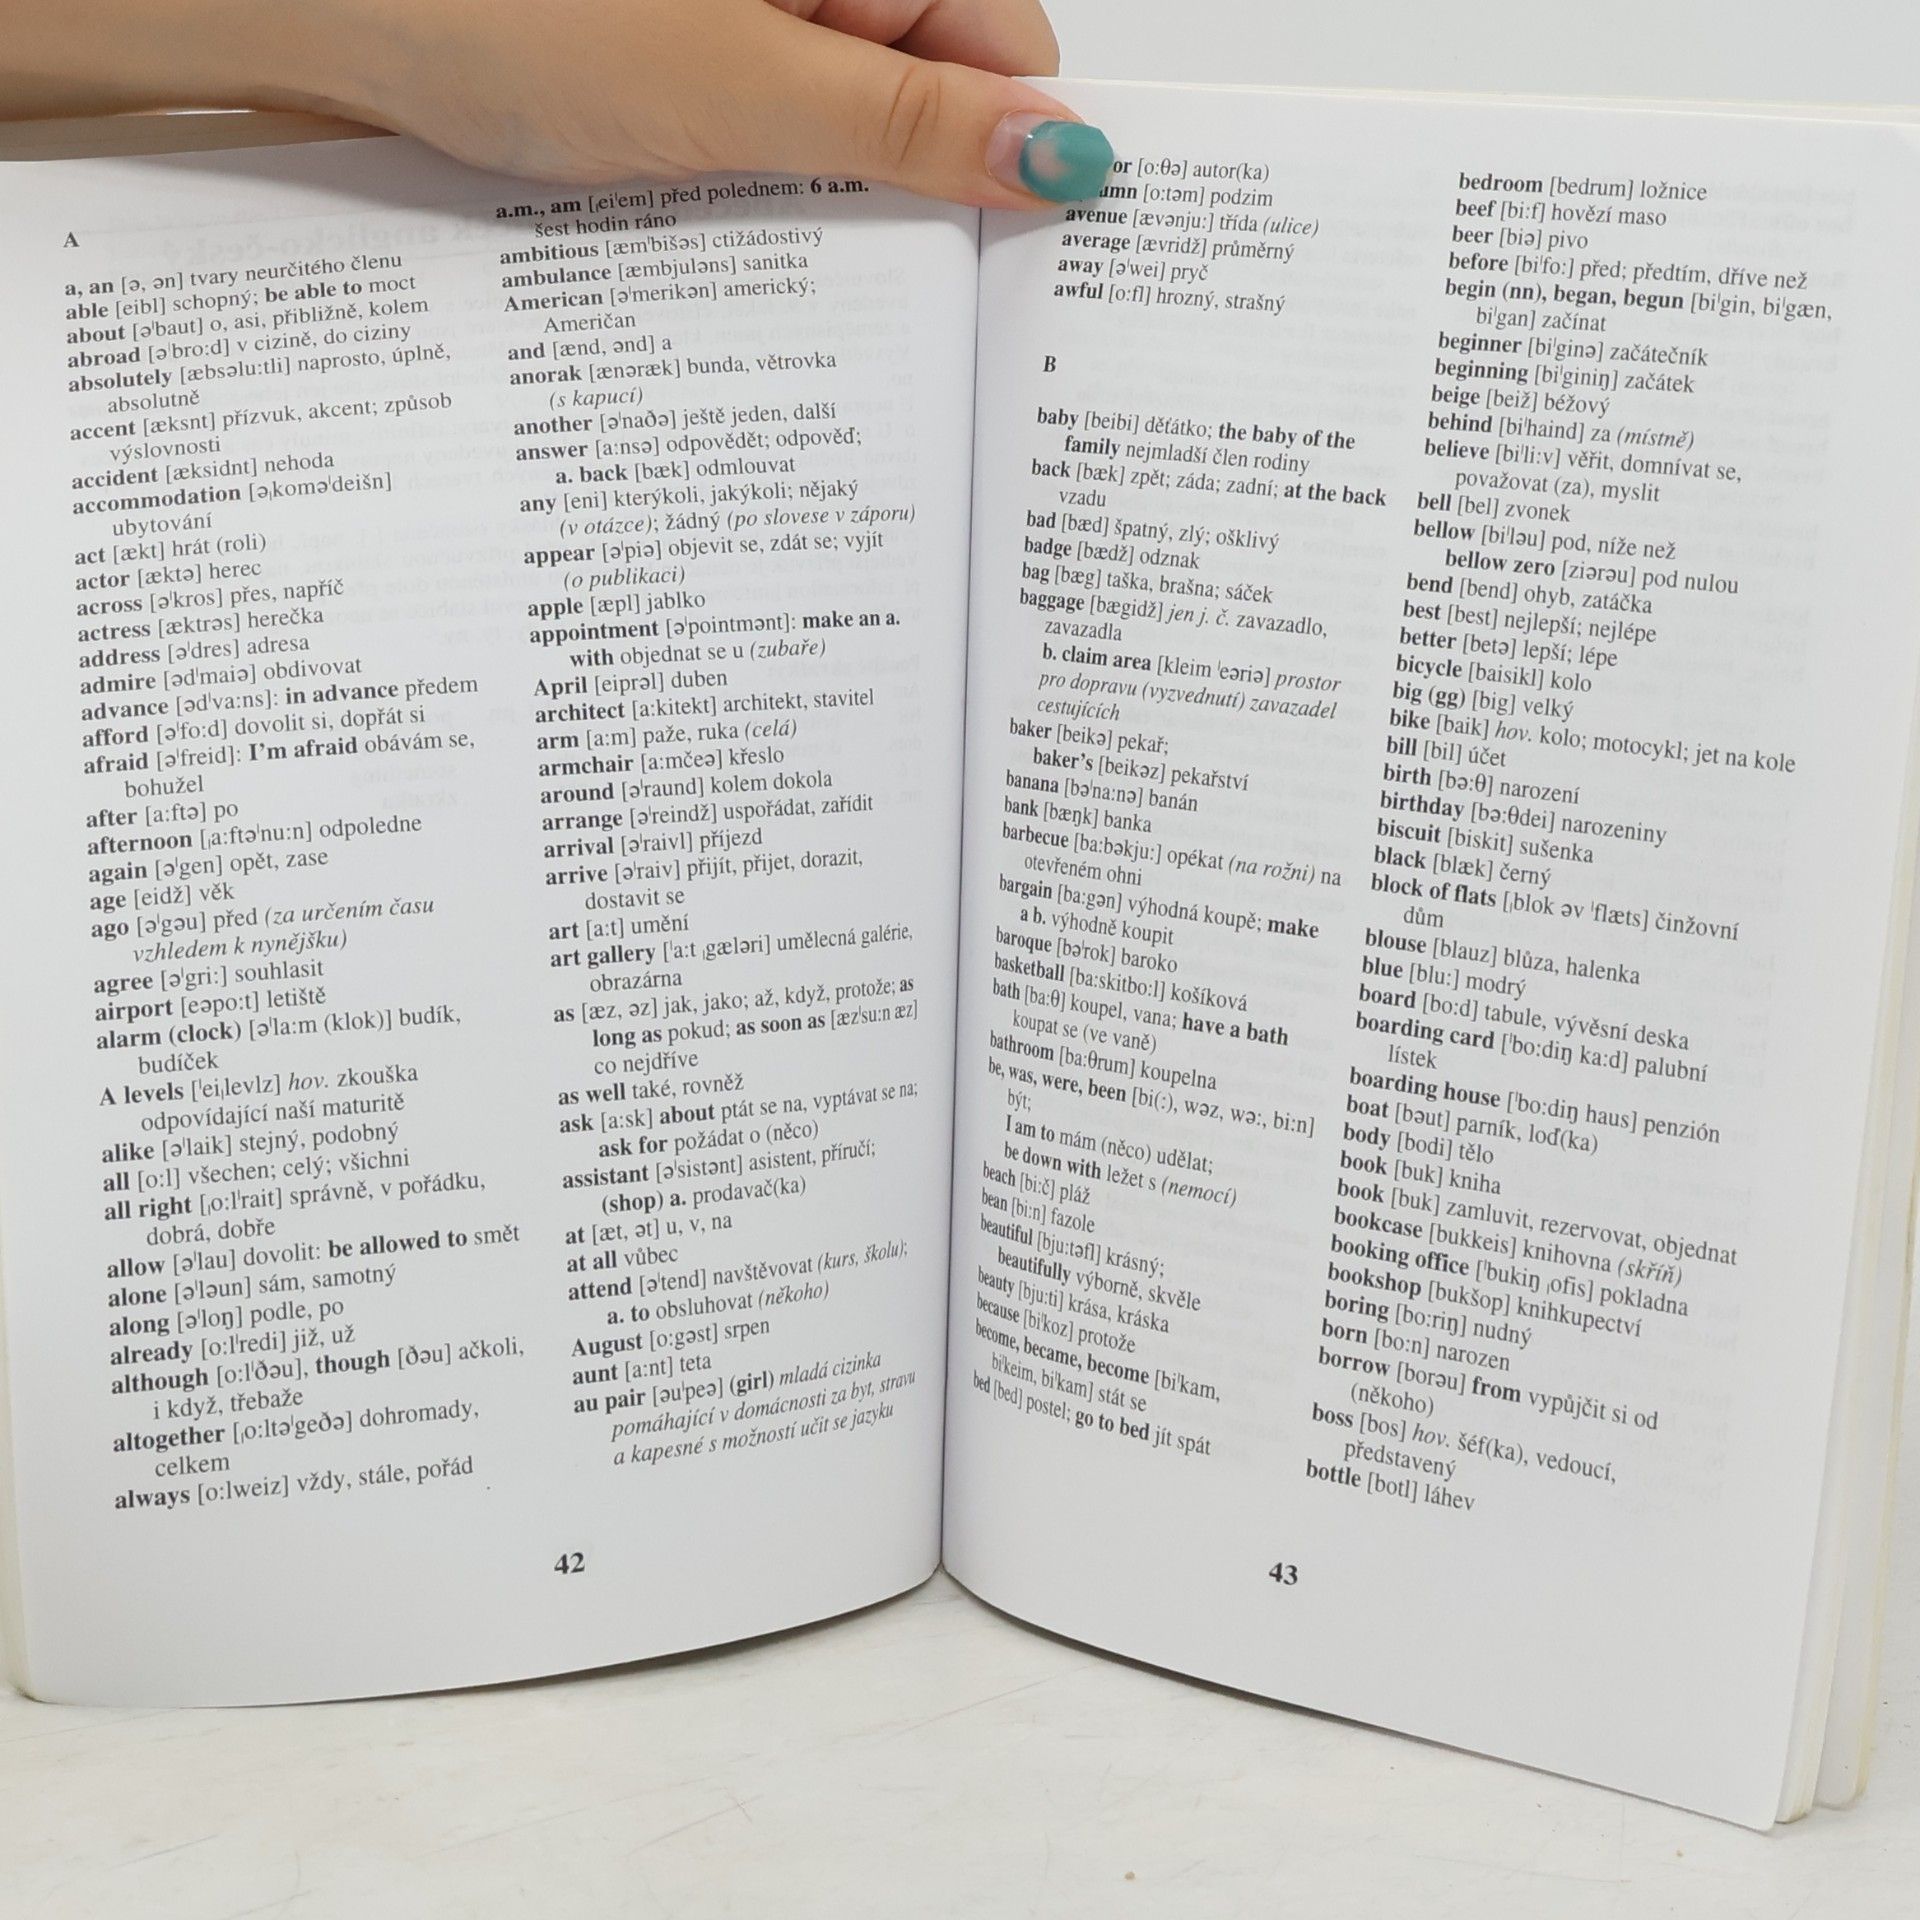 A
a, an [ə, ən] tvary neurčitého členu
able [eibl] schopný; be able to moct
about [əˈbaut] o, asi, přibližně, kolem
abroad [əˈbro:d] v cizině, do ciziny
absolutely [æbsəlu:tli] naprosto, úplně,
absolutně
accent [æksnt] přízvuk, akcent; způsob
výslovnosti
accident [æksidnt] nehoda
accommodation [əˌkoməˈdeišn]
ubytování
act [ækt] hrát (roli)
actor [æktə] herec
across [əˈkros] přes, napříč
actress [æktrəs] herečka
address [əˈdres] adresa
admire [ədˈmaiə] obdivovat
advance [ədˈva:ns]: in advance předem
afford [əˈfo:d] dovolit si, dopřát si
afraid [əˈfreid]: I'm afraid obávám se,
bohužel
after [a:ftə] po
afternoon [ˌa:ftəˈnu:n] odpoledne
again [əˈgen] opět, zase
age [eidž] věk
ago [əˈgəu] před (za určením času
vzhledem k nynějšku)
agree [əˈgri:] souhlasit
airport [eəpo:t] letiště
alarm (clock) [əˈla:m (klok)] budík,
budíček
A levels [ˈeiˌlevlz] hov. zkouška
odpovídající naší maturitě
alike [əˈlaik] stejný, podobný
all [o:l] všechen; celý; všichni
all right [ˌo:lˈrait] správně, v pořádku,
dobrá, dobře
allow [əˈlau] dovolit: be allowed to smět
alone [əˈləun] sám, samotný
along [əˈloŋ] podle, po
already [o:lˈredi] již, už
although [o:lˈðəu], though [ðəu] ačkoli,
i když, třebaže
altogether [ˌo:ltəˈgeðə] dohromady,
celkem
always [o:lweiz] vždy, stále, pořád
a.m., am [ˌeiˈem] před polednem: 6 a.m.
šest hodin ráno
ambitious [æmˈbišəs] ctižádostivý
ambulance [æmbjuləns] sanitka
American [əˈmerikən] americký;
Američan
and [ænd, ənd] a
anorak [ænəræk] bunda, větrovka
(s kapucí)
another [əˈnaðə] ještě jeden, další
answer [a:nsə] odpovědět; odpověď;
a. back [bæk] odmlouvat
any [eni] kterýkoli, jakýkoli; nějaký
(v otázce); žádný (po slovese v záporu)
appear [əˈpiə] objevit se, zdát se; vyjít
(o publikaci)
apple [æpl] jablko
appointment [əˈpointmənt]: make an a.
with objednat se u (zubaře)
April [eiprəl] duben
architect [a:kitekt] architekt, stavitel
arm [a:m] paže, ruka (celá)
armchair [a:mčeə] křeslo
around [əˈraund] kolem dokola
arrange [əˈreindž] uspořádat, zařídit
arrival [əˈraivl] příjezd
arrive [əˈraiv] přijít, přijet, dorazit,
dostavit se
art [a:t] umění
art gallery [ˈa:t ˌgæləri] umělecná galérie,
obrazárna
as [æz, əz] jak, jako; až, když, protože; as
long as pokud; as soon as [æzˈsu:n æz]
co nejdříve
as well také, rovněž
ask [a:sk] about ptát se na, vyptávat se na;
ask for požádat o (něco)
assistant [əˈsistənt] asistent, příručí;
(shop) a. prodavač(ka)
at [æt, ət] u, v, na
at all vůbec
attend [əˈtend] navštěvovat (kurs, školu);
a. to obsluhovat (někoho)
August [o:gəst] srpen
aunt [a:nt] teta
au pair [əuˈpeə] (girl) mladá cizinka
pomáhající v domácnosti za byt, stravu
a kapesné s možností učit se jazyku
42
or [o:θə] autor(ka)
umn [o:təm] podzim
avenue [ævənju:] třída (ulice)
average [ævridž] průměrný
away [əˈwei] pryč
awful [o:fl] hrozný, strašný
B
baby [beibi] děťátko; the baby of the
family nejmladší člen rodiny
back [bæk] zpět; záda; zadní; at the back
vzadu
bad [bæd] špatný, zlý; ošklivý
badge [bædž] odznak
bag [bæg] taška, brašna; sáček
baggage [bægidž] jen j. č. zavazadlo,
zavazadla
b. claim area [kleim ˈeəriə] prostor
pro dopravu (vyzvednutí) zavazadel
cestujících
baker [beikə] pekař;
baker's [beikəz] pekařství
banana [bəˈna:nə] banán
bank [bæŋk] banka
barbecue [ba:bəkju:] opékat (na rožni) na
otevřeném ohni
bargain [ba:gən] výhodná koupě; make
a b. výhodně koupit
baroque [bəˈrok] baroko
basketball [ba:skitbo:l] košíková
bath [ba:θ] koupel, vana; have a bath
koupat se (ve vaně)
bathroom [ba:θrum] koupelna
be, was, were, been [bi(:), wəz, wə:, bi:n]
být;
I am to mám (něco) udělat;
be down with ležet s (nemocí)
beach [bi:č] pláž
bean [bi:n] fazole
beautiful [bju:təfl] krásný;
beautifully výborně, skvěle
beauty [bju:ti] krása, kráska
because [biˈkoz] protože
become, became, become [biˈkam,
biˈkeim, biˈkam] stát se
bed [bed] postel; go to bed jít spát
bedroom [bedrum] ložnice
beef [bi:f] hovězí maso
beer [biə] pivo
before [biˈfo:] před; předtím, dříve než
begin (nn), began, begun [biˈgin, biˈgæn,
biˈgan] začínat
beginner [biˈginə] začátečník
beginning [biˈginiŋ] začátek
beige [beiž] béžový
behind [biˈhaind] za (místně)
believe [biˈli:v] věřit, domnívat se,
považovat (za), myslit
bell [bel] zvonek
bellow [biˈləu] pod, níže než
bellow zero [ziərəu] pod nulou
bend [bend] ohyb, zatáčka
best [best] nejlepší; nejlépe
better [betə] lepší; lépe
bicycle [baisikl] kolo
big (gg) [big] velký
bike [baik] hov. kolo; motocykl; jet na kole
bill [bil] účet
birth [bə:θ] narození
birthday [bə:θdei] narozeniny
biscuit [biskit] sušenka
black [blæk] černý
block of flats [ˌblok əv ˈflæts] činžovní
dům
blouse [blauz] blůza, halenka
blue [blu:] modrý
board [bo:d] tabule, vývěsní deska
boarding card [ˈbo:diŋ ka:d] palubní
lístek
boarding house [ˈbo:diŋ haus] penzión
boat [bəut] parník, loď(ka)
body [bodi] tělo
book [buk] kniha
book [buk] zamluvit, rezervovat, objednat
bookcase [bukkeis] knihovna (skříň)
booking office [ˈbukiŋ ˌofis] pokladna
bookshop [bukšop] knihkupectví
boring [bo:riŋ] nudný
born [bo:n] narozen
borrow [borəu] from vypůjčit si od
(někoho)
boss [bos] hov. šéf(ka), vedoucí,
představený
bottle [botl] láhev
43